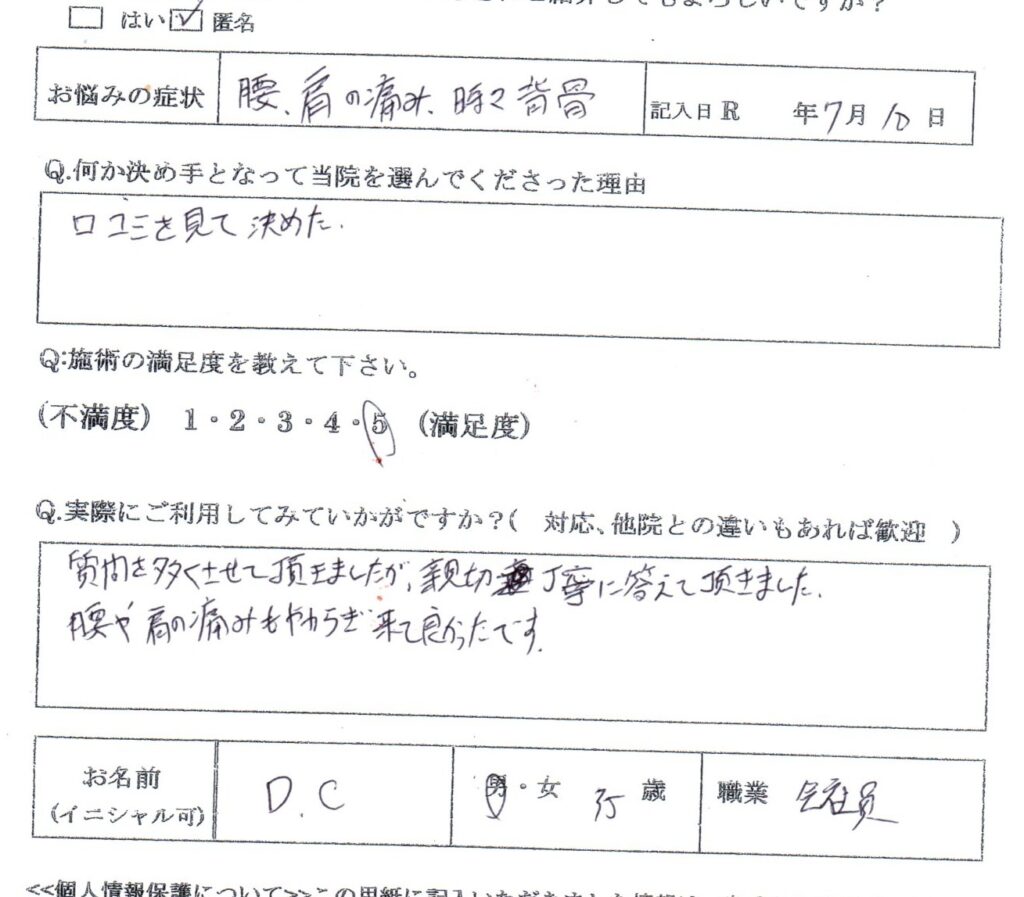 てもよろしいですか？
はい ☑ 匿名
お悩みの症状 腰、肩の痛み、時々背骨 記入日 R 年 7月 10日
Q.何か決め手となって当院を選んでくださった理由
口コミを見て決めた.
Q:施術の満足度を教えて下さい。
(不満度) 1・2・3・4・5 (満足度)
Q.実際にご利用してみていかがですか？( 対応、他院との違いもあれば歓迎 )
質問を多くさせて頂きましたが、親切丁寧に答えて頂きました.
腰や肩の痛みもやわらぎ来て良かったです.
お名前 D.C 男・女 35歳 職業 会社員
(イニシャル可)
<<個人情報保護について>>この用紙に記入いただきました情報は